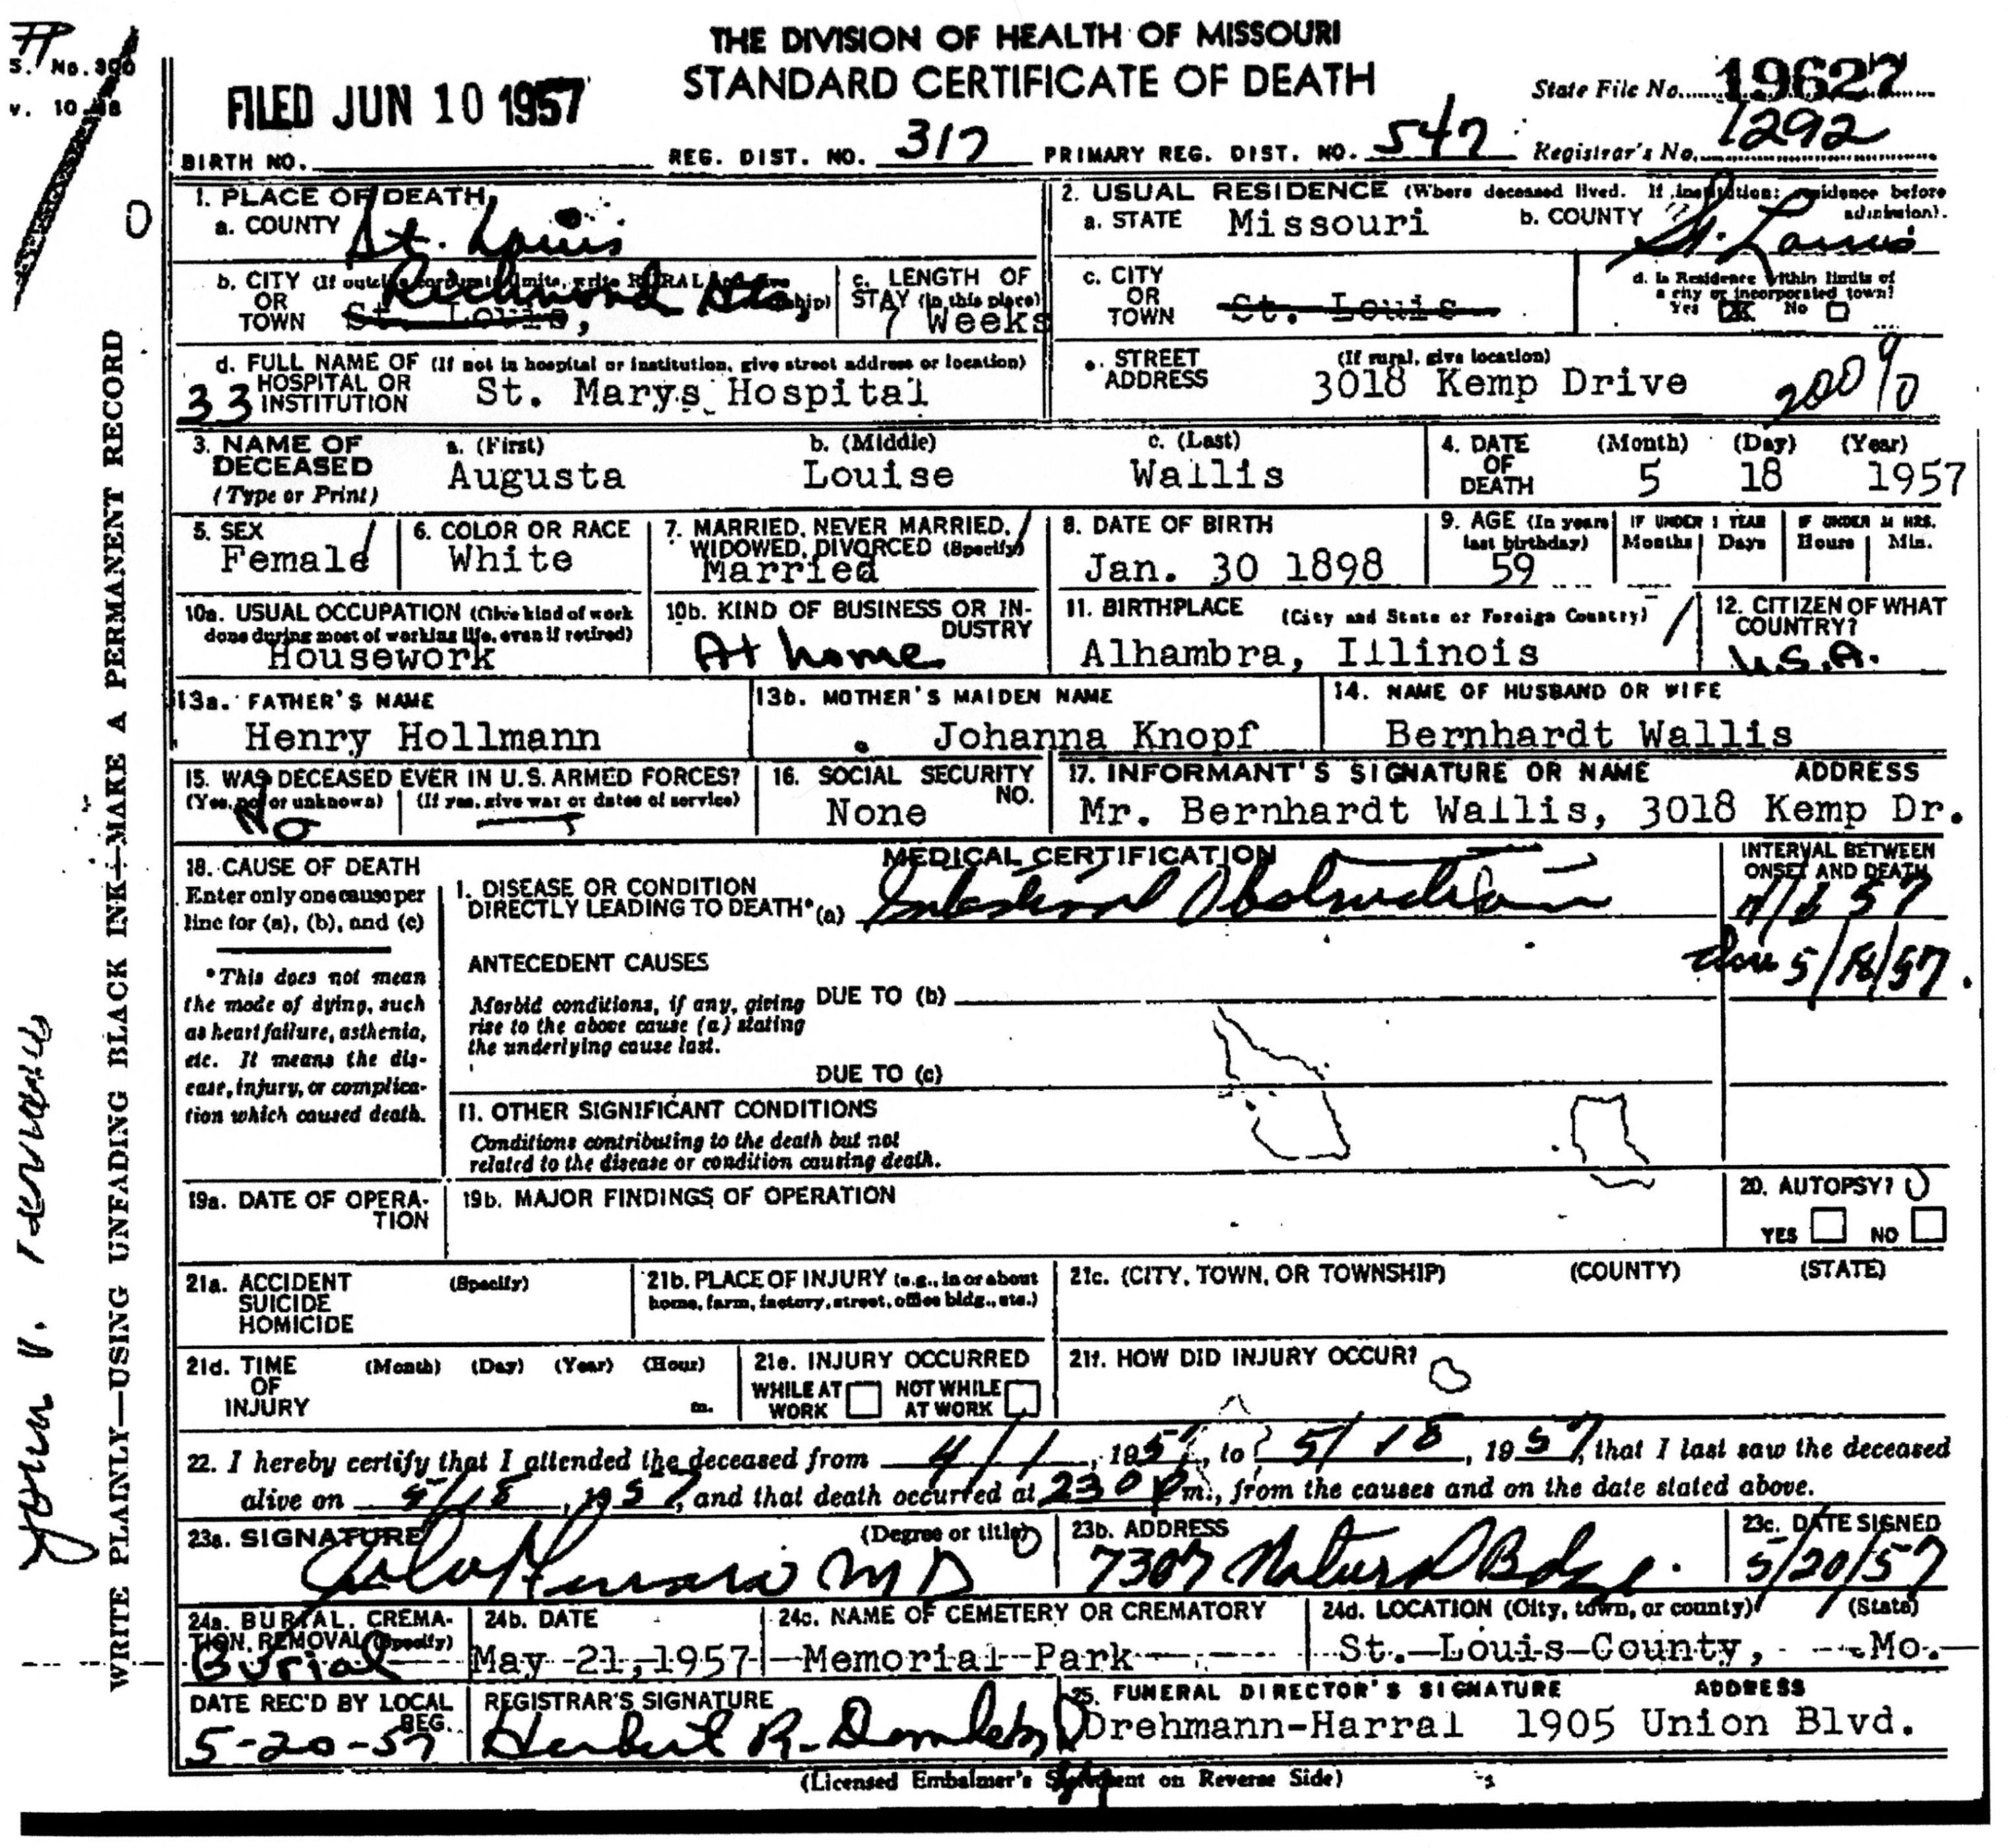 THE DIVISION OF HEALTH OF MISSOURI
STANDARD CERTIFICATE OF DEATH
S. No. 300
v. 10
FILED JUN 10 1957
State File No. 19627
BIRTH NO. REG. DIST. NO. 317 PRIMARY REG. DIST. NO. 547 Registrar's No. 1292
1. PLACE OF DEATH
a. COUNTY St. Louis
2. USUAL RESIDENCE (Where deceased lived. If institution: residence before admission).
a. STATE Missouri b. COUNTY St. Louis
b. CITY (If outside corporate limits, write RURAL
OR
TOWN St. Louis, Richmond Hts
c. LENGTH OF
STAY (in this place)
7 Weeks
c. CITY
OR
TOWN St. Louis
d. Is Residence within limits of
a city or incorporated town?
Yes No
d. FULL NAME OF (If not in hospital or institution, give street address or location)
HOSPITAL OR
INSTITUTION St. Marys Hospital
33
e. STREET
ADDRESS
(If rural, give location)
3018 Kemp Drive
3. NAME OF
DECEASED
(Type or Print)
a. (First)
Augusta
b. (Middle)
Louise
c. (Last)
Wallis
4. DATE
OF
DEATH
(Month) (Day) (Year)
5 18 1957
5. SEX
Female
6. COLOR OR RACE
White
7. MARRIED, NEVER MARRIED,
WIDOWED, DIVORCED (Specify)
Married
8. DATE OF BIRTH
Jan. 30 1898
9. AGE (In years
last birthday)
59
IF UNDER 1 YEAR
Months Days
IF UNDER 24 HRS.
Hours Min.
10a. USUAL OCCUPATION (Give kind of work
done during most of working life, even if retired)
Housework
10b. KIND OF BUSINESS OR IN-
DUSTRY
At home
11. BIRTHPLACE (City and State or Foreign Country)
Alhambra, Illinois
12. CITIZEN OF WHAT
COUNTRY?
U.S.A.
13a. FATHER'S NAME
Henry Hollmann
13b. MOTHER'S MAIDEN NAME
Johanna Knopf
14. NAME OF HUSBAND OR WIFE
Bernhardt Wallis
15. WAS DECEASED EVER IN U.S. ARMED FORCES?
(Yes, no, or unknown) (If yes, give war or dates of service)
No
16. SOCIAL SECURITY
NO.
None
17. INFORMANT'S SIGNATURE OR NAME ADDRESS
Mr. Bernhardt Wallis, 3018 Kemp Dr.
18. CAUSE OF DEATH
Enter only one cause per
line for (a), (b), and (c)
*This does not mean
the mode of dying, such
as heart failure, asthenia,
etc. It means the dis-
ease, injury, or complica-
tion which caused death.
MEDICAL CERTIFICATION
I. DISEASE OR CONDITION
DIRECTLY LEADING TO DEATH*(a) Intestinal Obstruction
INTERVAL BETWEEN
ONSET AND DEATH
5/18/57.
ANTECEDENT CAUSES
Morbid conditions, if any, giving
rise to the above cause (a) stating
the underlying cause last.
DUE TO (b)
DUE TO (c)
11. OTHER SIGNIFICANT CONDITIONS
Conditions contributing to the death but not
related to the disease or condition causing death.
19a. DATE OF OPERA-
TION
19b. MAJOR FINDINGS OF OPERATION
20. AUTOPSY?
YES NO
21a. ACCIDENT
SUICIDE
HOMICIDE
(Specify)
21b. PLACE OF INJURY (e.g., in or about
home, farm, factory, street, office bldg., etc.)
21c. (CITY, TOWN, OR TOWNSHIP) (COUNTY) (STATE)
21d. TIME
OF
INJURY
(Month) (Day) (Year) (Hour)
m.
21e. INJURY OCCURRED
WHILE AT
WORK
NOT WHILE
AT WORK
21f. HOW DID INJURY OCCUR?
22. I hereby certify that I attended the deceased from 4/1, 1957, to 5/18, 1957, that I last saw the deceased
alive on 5/18, 1957, and that death occurred at 230 P m., from the causes and on the date stated above.
23a. SIGNATURE (Degree or title)
MD
23b. ADDRESS
7307 Natural Bdge.
23c. DATE SIGNED
5/20/57
24a. BURIAL, CREMA-
TION, REMOVAL (Specify)
Burial
24b. DATE
May 21, 1957
24c. NAME OF CEMETERY OR CREMATORY
Memorial Park
24d. LOCATION (City, town, or county) (State)
St. Louis County, Mo.
DATE REC'D BY LOCAL
REG.
5-20-57
REGISTRAR'S SIGNATURE
Herbert R. Domke MD
25. FUNERAL DIRECTOR'S SIGNATURE ADDRESS
Drehmann-Harral 1905 Union Blvd.
(Licensed Embalmer's Statement on Reverse Side)
WRITE PLAINLY—USING UNFADING BLACK INK—MAKE A PERMANENT RECORD